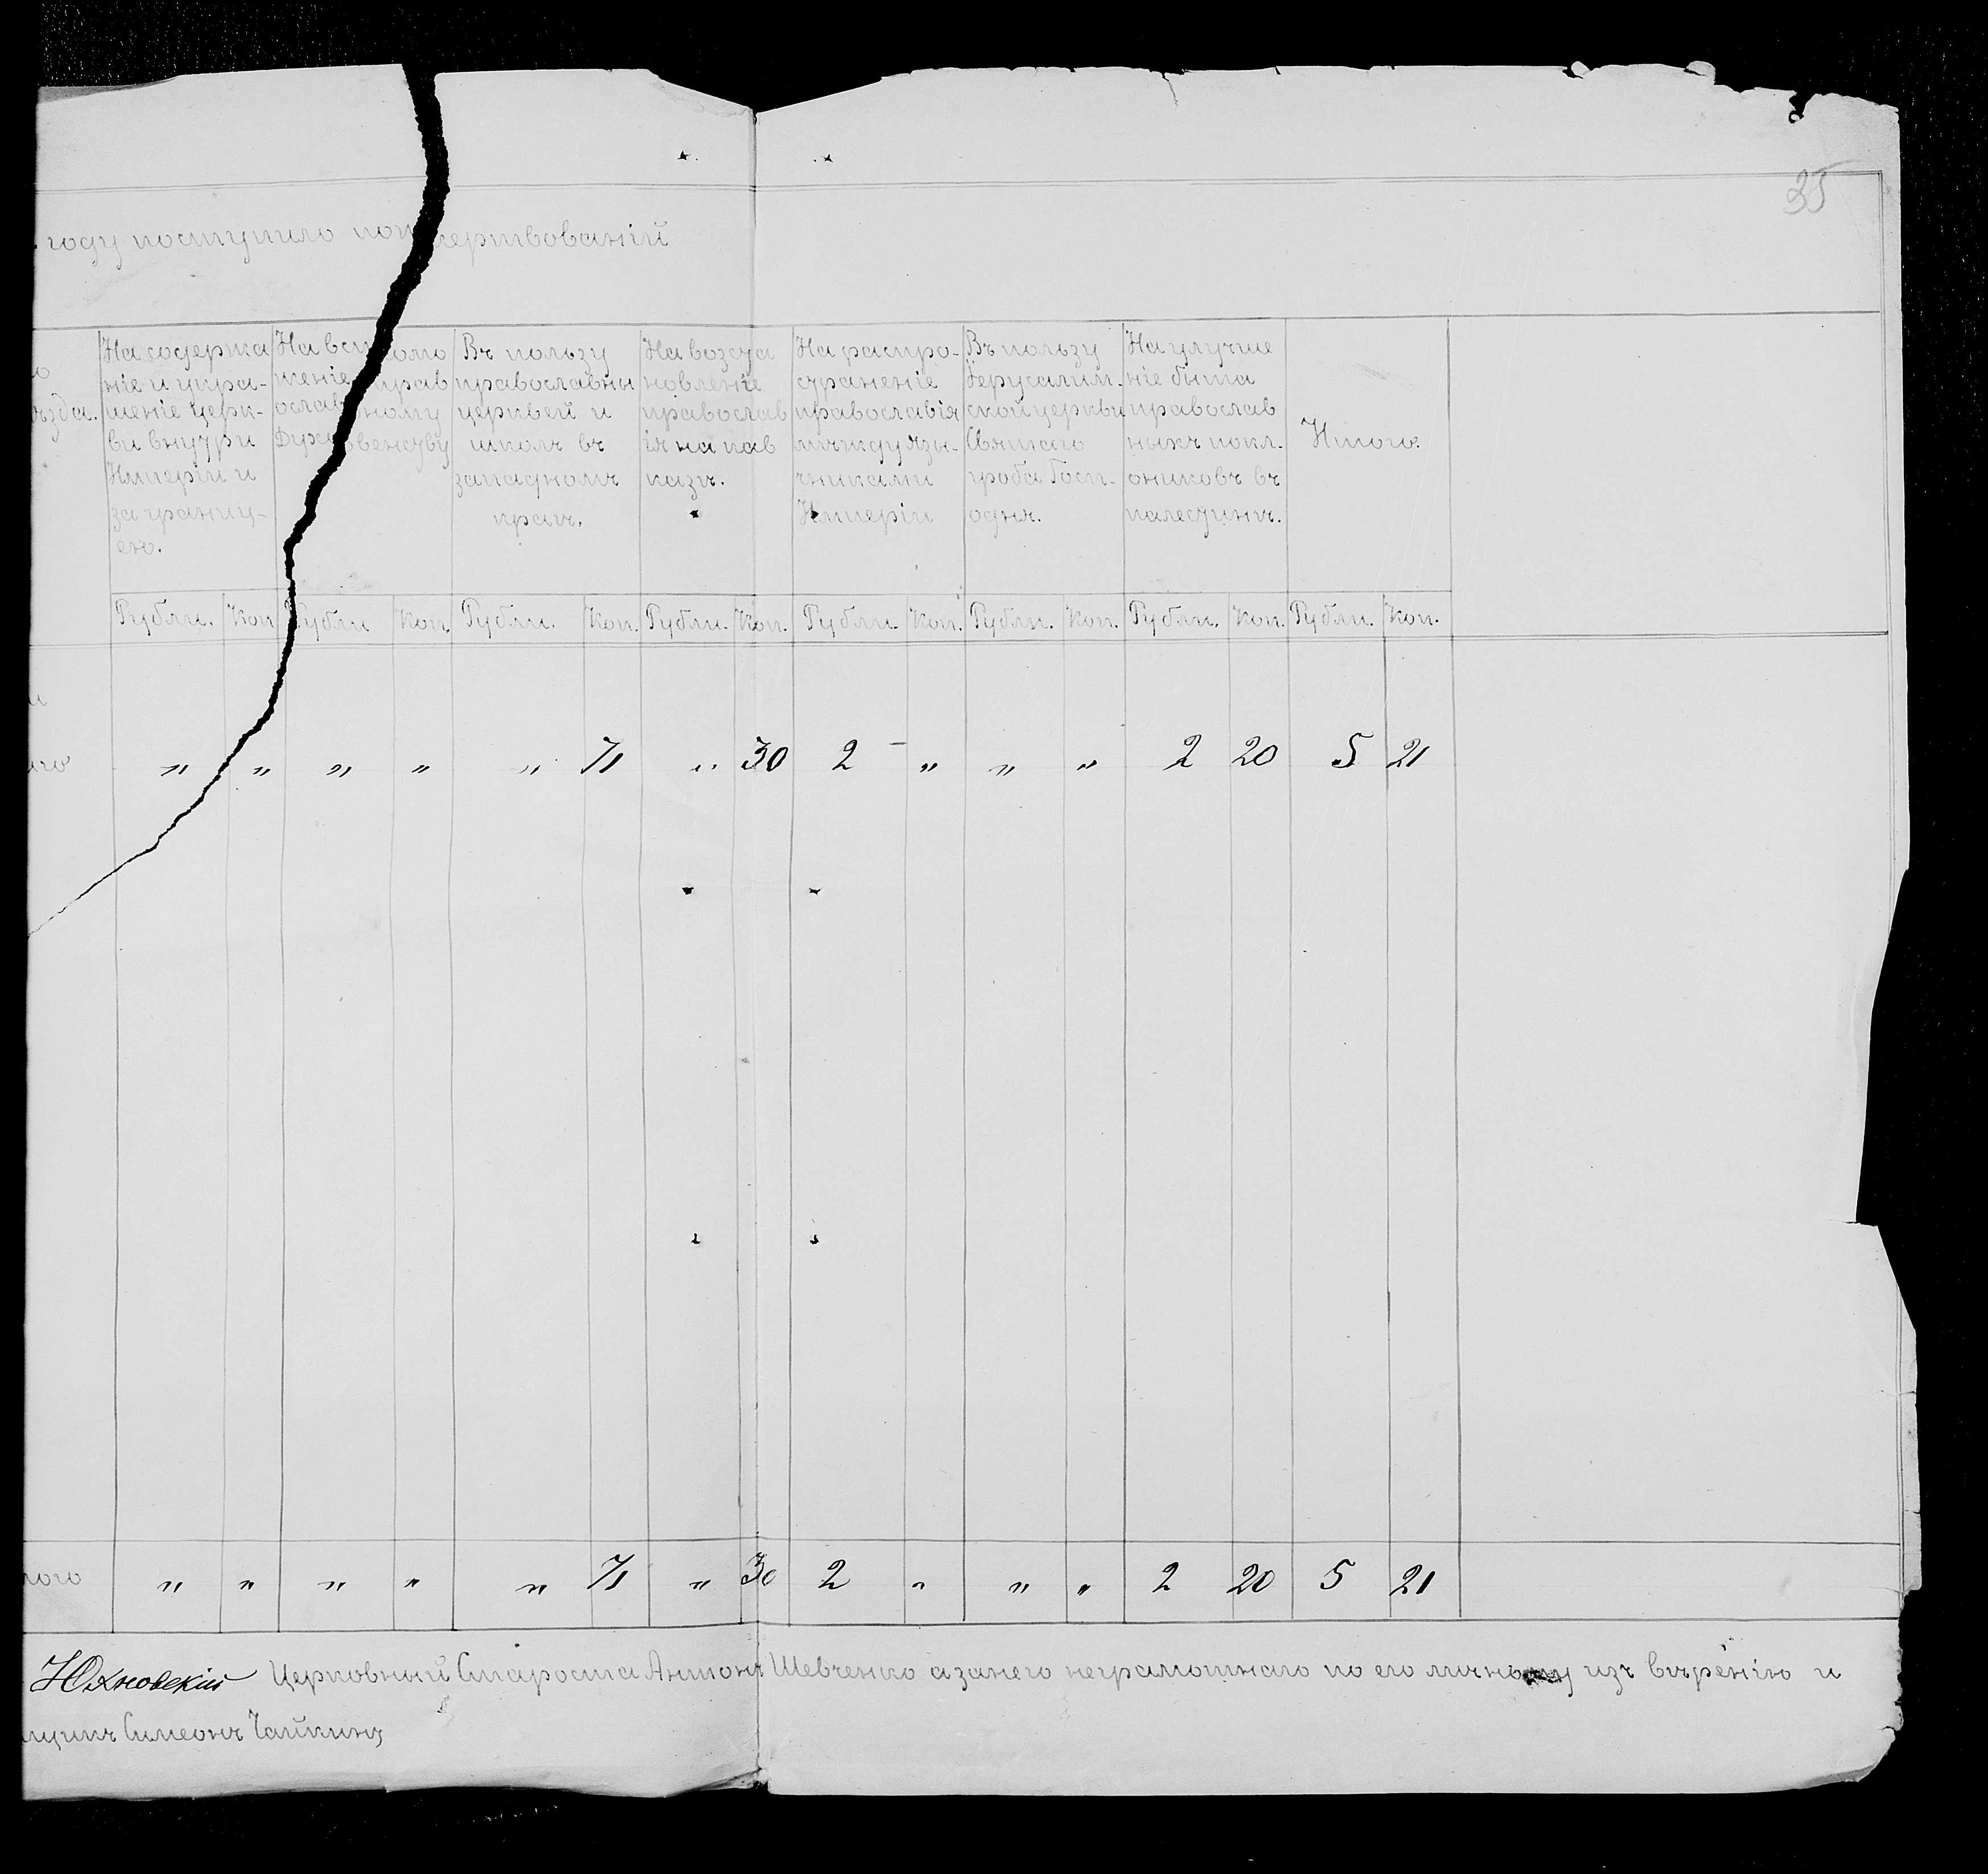 35
году поступило пожертвованій
ѣзда.
На содержа
ніе и укра-
шеніе церк-
ви внутри
Имперіи и
за границ-
ею.
На вспомо
женіе прав
ославному
Духовенству
Въ пользу
православны
церквей и
школъ въ
западномъ
краѣ.
На возста
новленіе
православ
ія на кав
казѣ.
На распро-
страненіе
православія
между язы-
чниками
Имперіи
Въ пользу
Іерусалим.
ской церкви
Святаго
гроба Госп-
одня.
На улучше
ніе быта
православ
ныхъ покл.
ониковъ въ
палестинѣ.
Итого.
Рубли. Коп Рубли Коп. Рубли. Коп. Рубли. Коп. Рубли Коп. Рубли. Коп. Рубли. Коп. Рубли. Коп.
„ „ „ „ „ 71 „ 30 2 „ „ „ 2 20 5 21
„ „ „ „ „ 71 „ 30 2 „ „ „ 2 20 5 21
Юхновскій Церковный Староста Антонъ Шевченко а занего неграмотнаго по его личному изъ вѣренію и
Симеонъ Чайкинъ